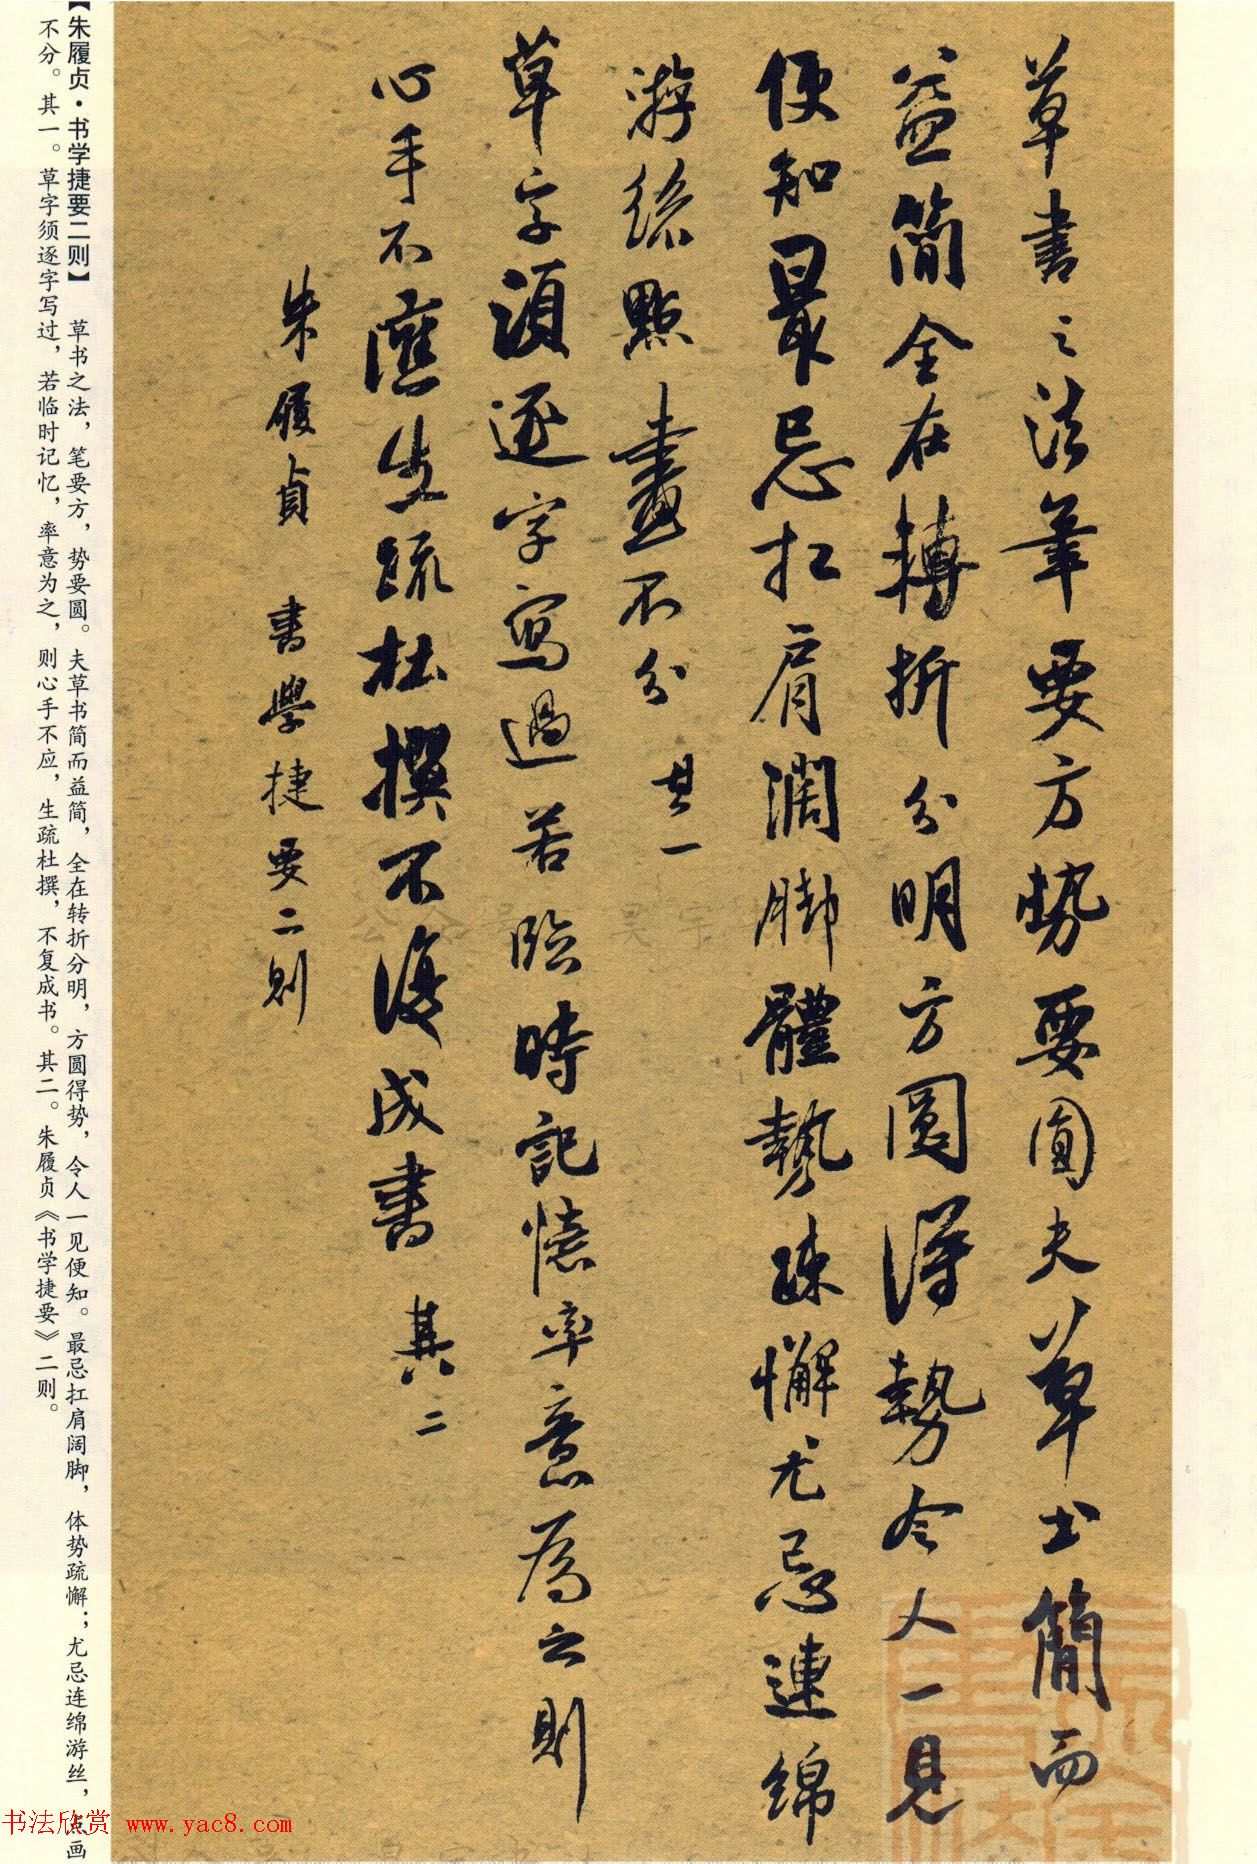 草書之法筆要方勢要圓夫草书簡而
益簡全在轉折分明方圓得勢令人一見
便知最忌扛肩濶脚體勢疎懈尤忌連綿
游絲點畫不分 其一
草字須逐字寫過若臨時記憶率意為之則
心手不應生疏杜撰不復成書 其二
朱履貞 書學捷要二則
【朱履贞·书学捷要二则】 草书之法，笔要方，势要圆。夫草书简而益简，全在转折分明，方圆得势，令人一见便知。最忌扛肩阔脚，体势疏懈；尤忌连绵游丝，点画
不分。其一。草字须逐字写过，若临时记忆，率意为之，则心手不应，生疏杜撰，不复成书。其二。朱履贞《书学捷要》二则。
书法欣赏 www.yac8.com